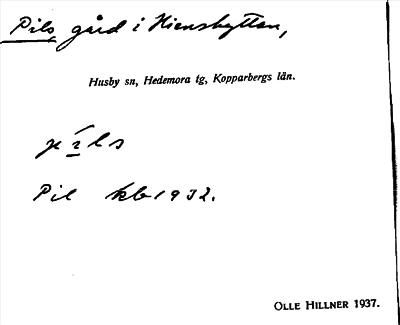 Pils, gård i Kienshyttan,
Husby sn, Hedemora tg, Kopparbergs län.
pils
Pil kb 1932.
OLLE HILLNER 1937.